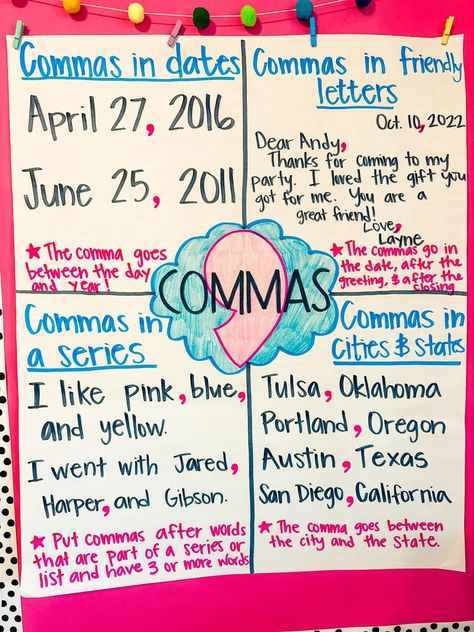 Commas in dates
April 27, 2016
June 25, 2011
★ The comma goes
between the day
and year!
Commas in friendly
letters
Oct. 10, 2022
Dear Andy,
Thanks for coming to my
party. I loved the gift you
got for me. You are a
great friend!
Love,
Layne
★ The commas go in
the date, after the
greeting, & after the
closing
COMMAS
Commas in
a series
I like pink, blue,
and yellow.
I went with Jared,
Harper, and Gibson.
★ Put commas after words
that are part of a series or
list and have 3 or more words
Commas in
Cities & States
Tulsa, Oklahoma
Portland, Oregon
Austin, Texas
San Diego, California
★ The comma goes between
the city and the state.